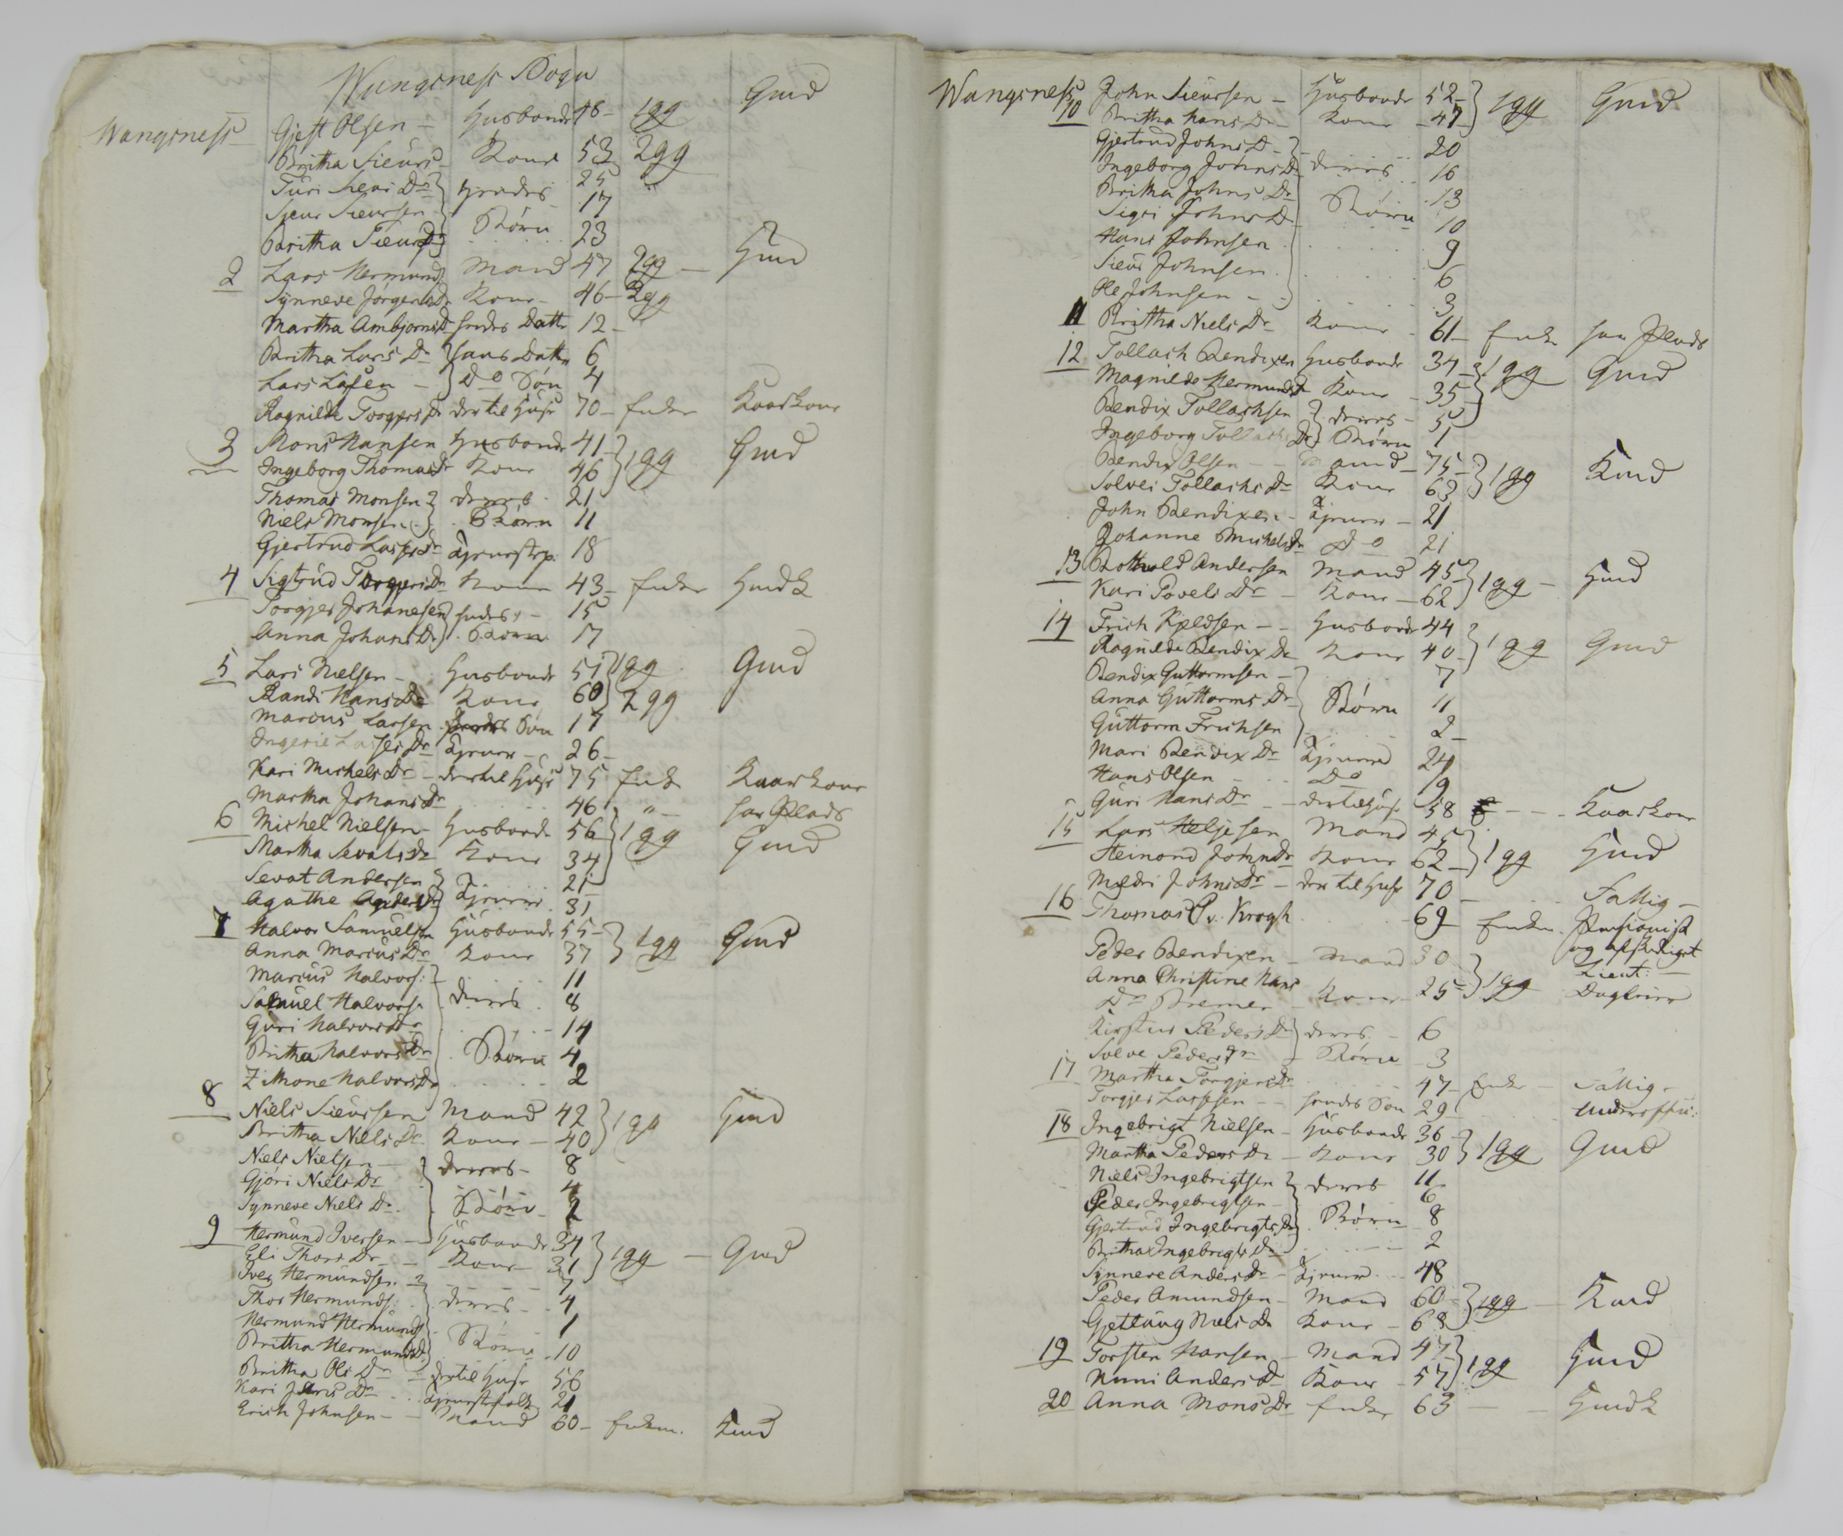 Wangsness Sogn
Wangsness Gjest Olsen - Husbonde 48 - 1 gg Gmd
Britha Sieurs - Kone 53 2 gg
Turi Sieurs Dr hendes 25
Sieur Sieursen Børn 17
Britha Sieurs D 23
2 Lars Hermunds Mand 47 2 gg - Hmd
Synneve Jørgens Dr Kone - 46 - 2 gg
Martha Ambjørns D hendes Datter 12 -
Britha Lars Dr hans Datter 6
Lars Larsen - Do Søn 4
Ragnilde Torgers Dr der til Huse 70 - Enke Kaarkone
3 Mons Hansen Husbonde 41 1 gg Gmd
Ingeborg Thomas Dr Kone 46
Thomas Monsen deres 21
Niels Monsen Børn 11
Gjertrud Lasses Dr Tjenestep. 18
4 Sigtrud Torgers Dr Kone 43 - Enke Hmdk
Torgjer Johanesen hendes - 15
Anna Johans Dr Børn 17
5 Lars Nielsen - Husbonde 51 1 gg Gmd
Randi Hans Dr Kone 60 2 gg
Marcus Larsen Søn 17
Dr Tjener - 26 -
Kari Michels Dr - der til Huse 75 Enke Kaarkone
Martha Johans Dr 46 " - har Plads
6 Michel Nielsen - Husbonde 56 1 gg Gmd
Martha Sevats Dr Kone 34
Sevat Andersen Tjenere 21
Agathe Anders D 31
7 Halvor Samuelsen Husbonde 55 - 1 gg Gmd
Anna Marcus Dr Kone 37
Marcus Halvors: 11
Samuel Halvors. deres 8
Guri Halvors Dr 14
Britha Halvors Dr Børn 4
Halvors Dr 2
8 Niels Sieursen Mand 42 1 gg Hmd
Britha Niels Dr Kone - 40
Niels Nielsen - deres - 8
Gjøri Niels Dr 4
Synneve Niels Dr. Børn - 2
9 Hermund Iversen - Husbonde 34 1 gg - Gmd
Eli Thors Dr Kone - 31
Iver Hermundsen 7
Thor Hermunds: deres - 4
Hermund Hermunds Børn 1
Britha Hermunds Dr 10
Britha Ols Dr - der til Huse 56
Kari Dr Tjenestfolk 21
Erich Johnsen - Mand 60 - Enkem. Kmd
Wangsness
10 John Sieursen - Husbonde 52 1 gg Gmd
Britha Hans Dr Kone - 47
Gjertrud Johns D 20
Ingeborg Johns Dr deres 16
Britha Johns Dr 13
Sigri Johns D Børn 10
Hans Johnsen 9
Sieur Johnsen 6
Ole Johnsen - 3
11 Britha Niels Dr Kone 61 - Enke har Plads
12 Tollach Bendixen Husbonde 34 1 gg Gmd
Magnilde Hermunds D Kone - 35
Bendix Tollachsen deres - 5
Ingeborg Tollachs Dr Børn 1
Bendix Olsen - Mand - 75 1 gg Kmd
Solvei Tollachs Dr Kone 63
John Bendixen - Tjener - 21
Johanne Michels Dr Do 21
13 Andersen Mand 45 1 gg - Hmd
Kari Povels Dr - Kone - 62
14 Frich - Husbonde 44 1 gg Gmd
Ragnilde Bendix Dr Kone 40
Bendix Guttormsen - 7
Anna Guttorms Dr Børn 11
Guttorm Frichsen 2 -
Mari Bendix Dr Tjenere 24
Hans Olsen - Do 19
Guri Hans Dr - der til Huse 58 - Kaarkone
15 Lars Heljesen Mand 45 1 gg Hmd
Steinord Johns Dr Kone 62
Johns Dr - der til Huse 70 - Fattig -
16 Thomas v. Krogh 69 - Enkem. Pensionist
og afskediget
Lieut: -
Peder Bendixen - Mand 30 1 gg Dagleier
Anna Christine Hans
Dr Bremer - Kone 25
Kirstine Peders Dr deres - 6
Solve Peders Dr - Børn 3
17 Martha Torgjers Dr 47 - Enke - Fattig -
Torgjer Larssen - hendes Søn 29 understü:
18 Ingebrigt Nielsen - Husbonde 36 1 gg Gmd
Martha Peders Dr - Kone 30
Niels Ingebrigtsen deres 11
Peder Ingebrigtsen - 6
Gjertrud Ingebrigts Dr Børn - 8
Britha Ingebrigts Dr 2
Synneve Anders Dr - Tjener 48
Peder Amundsen - Mand 60 1 gg - Kmd
Gjetlaug Niels Dr Kone - 68
19 Torsten Hansen - Mand 47 1 gg Hmd
Kuni Anders Dr Kone - 57
20 Anna Mons Dr Enke 63 - Hmdk